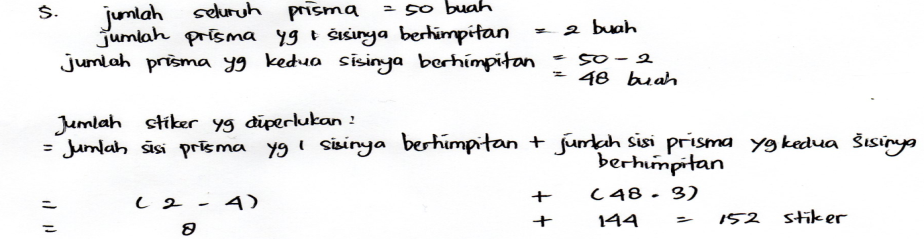 5. jumlah seluruh prisma = 50 buah
jumlah prisma yg 1 sisinya berhimpitan = 2 buah
jumlah prisma yg kedua sisinya berhimpitan = 50 - 2
= 48 buah
Jumlah stiker yg diperlukan :
= Jumlah sisi prisma yg 1 sisinya berhimpitan + jumlah sisi prisma yg kedua sisinya
berhimpitan
= (2 - 4) + (48 . 3)
= 8 + 144 = 152 stiker